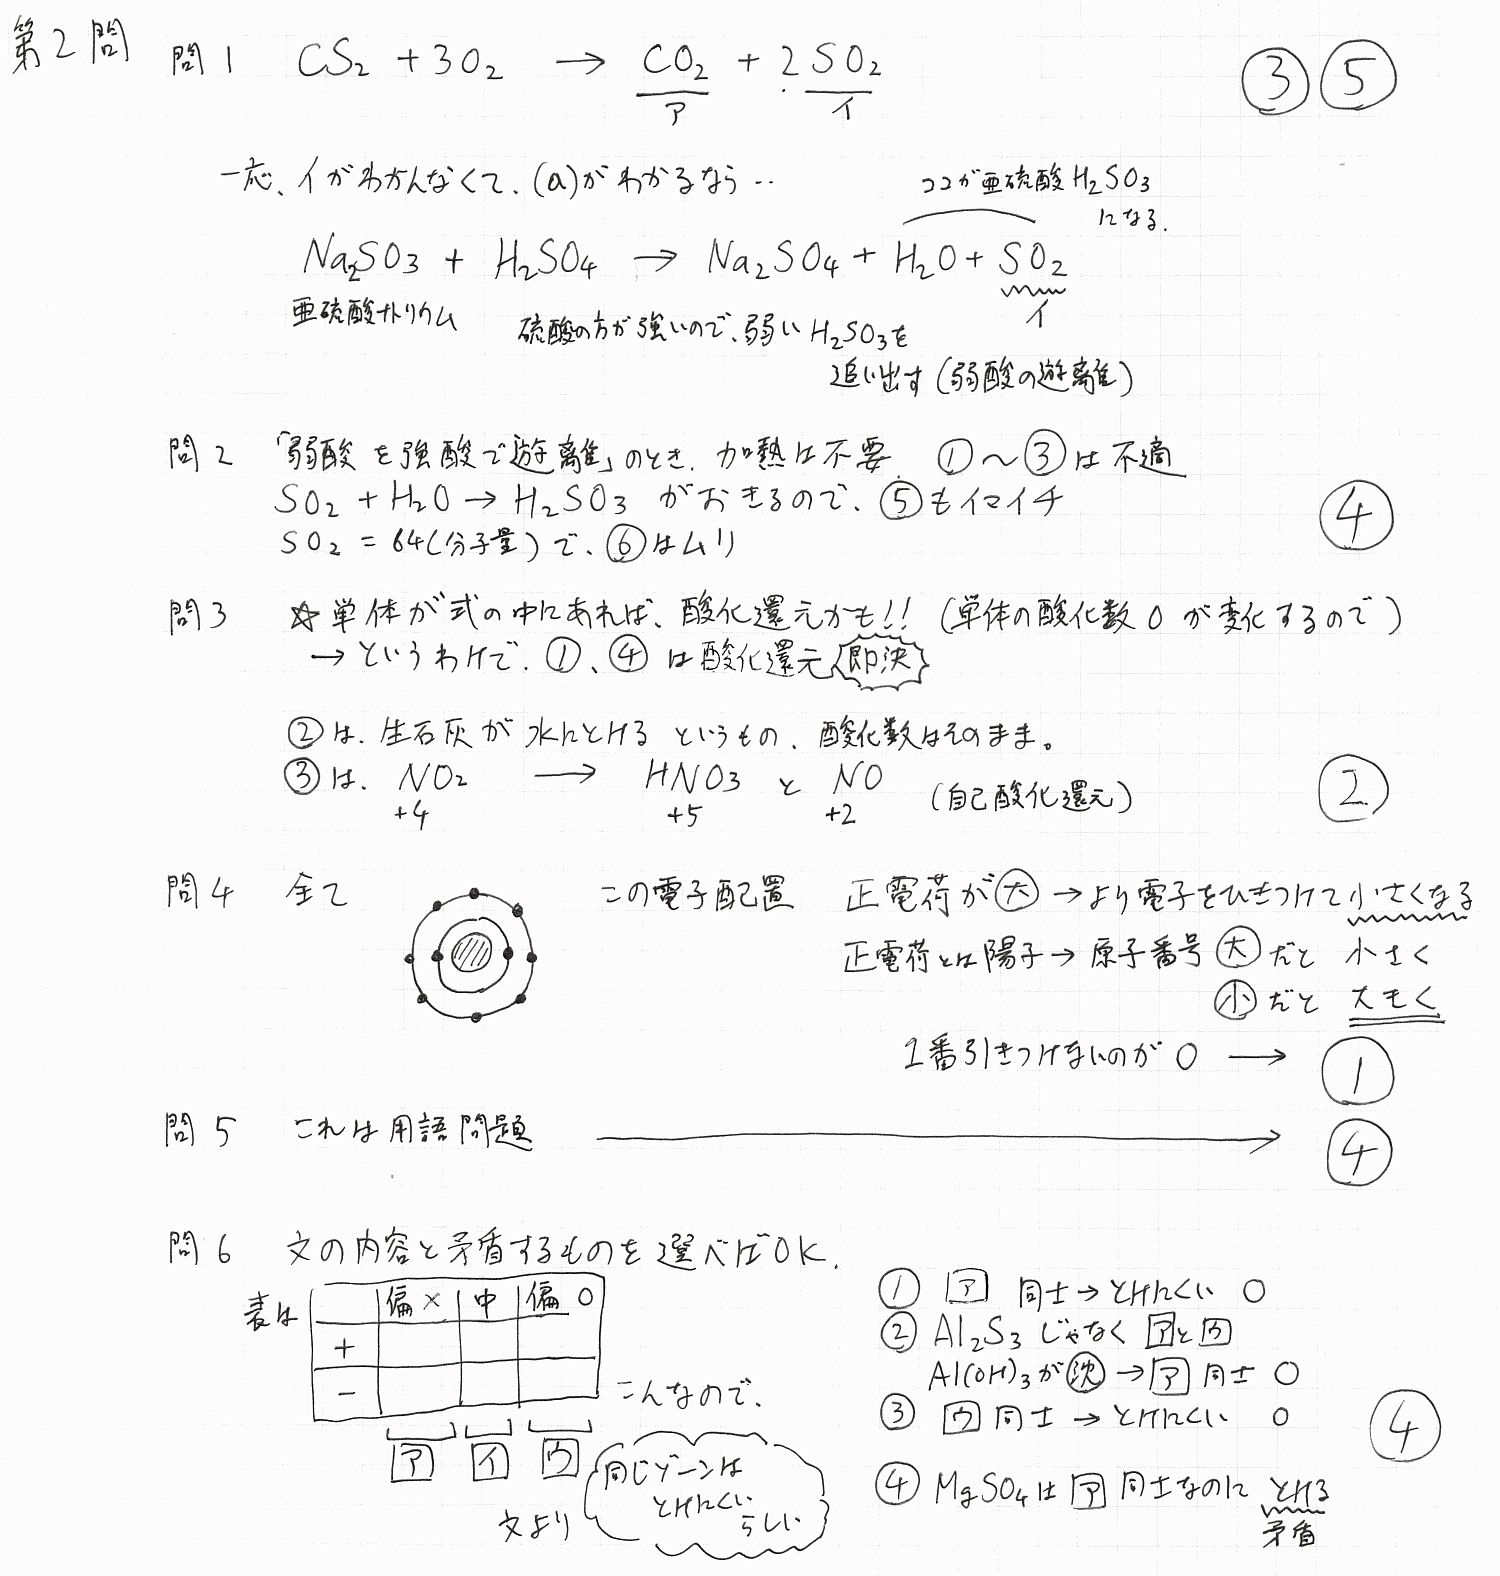 第2問
問1 CS₂ + 3O₂ → CO₂ + 2SO₂ ③⑤
ア イ
一応、イがわかんなくて、(a)がわかるなら‥
ココが亜硫酸H₂SO₃
になる.
Na₂SO₃ + H₂SO₄ → Na₂SO₄ + H₂O + SO₂
イ
亜硫酸ナトリウム
硫酸の方が強いので、弱いH₂SO₃を
追い出す(弱酸の遊離)
問2 「弱酸を強酸で遊離」のとき、加熱は不要. ①〜③は不適
SO₂ + H₂O → H₂SO₃ がおきるので、⑤もイマイチ ④
SO₂ = 64(分子量)で、⑥はムリ
問3 ☆単体が式の中にあれば、酸化還元かも!! (単体の酸化数0が変化するので)
→というわけで、①、④は酸化還元 即決
②は、生石灰が水にとけるというもの、酸化数はそのまま。
③は、NO₂ → HNO₃ と NO (自己酸化還元) ②
+4 +5 +2
問4 全て この電子配置 正電荷が大→より電子をひきつけて小さくなる
正電荷とは陽子→原子番号大だと 小さく
小だと 大きく
1番引きつけないのがO → ①
問5 これは用語問題 → ④
問6 文の内容と矛盾するものを選べばOK.
表は
偏× 中 偏○
+
−
こんなので、
ア イ ウ
文より
同じゾーンは
とけにくい
らしい
① ア 同士→とけにくい ○
② Al₂S₃じゃなく アとウ
Al(OH)₃が沈→ア 同士 ○
③ ウ同士→とけにくい ○
④ MgSO₄は ア 同士なのに とける
矛盾
④